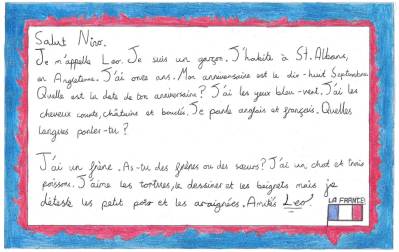 Salut Nino.
Je m'appelle Leo. Je suis un garçon. J'habite à St. Albans,
en Angleterre. J'ai onze ans. Mon anniversaire est le dix-huit Septembre.
Quelle est la date de ton anniversaire? J'ai les yeux bleu-vert. J'ai les
cheveux courts, châtains et bouclés. Je parle anglais et français. Quelles
langues parles-tu?
J'ai un frère. As-tu des frères ou des sœurs? J'ai un chat et trois
poissons. J'aime les tortues, le dessiner et les beignets mais je
déteste les petit pois et les araignées. Amitiés Leo.
LA FRANCE!